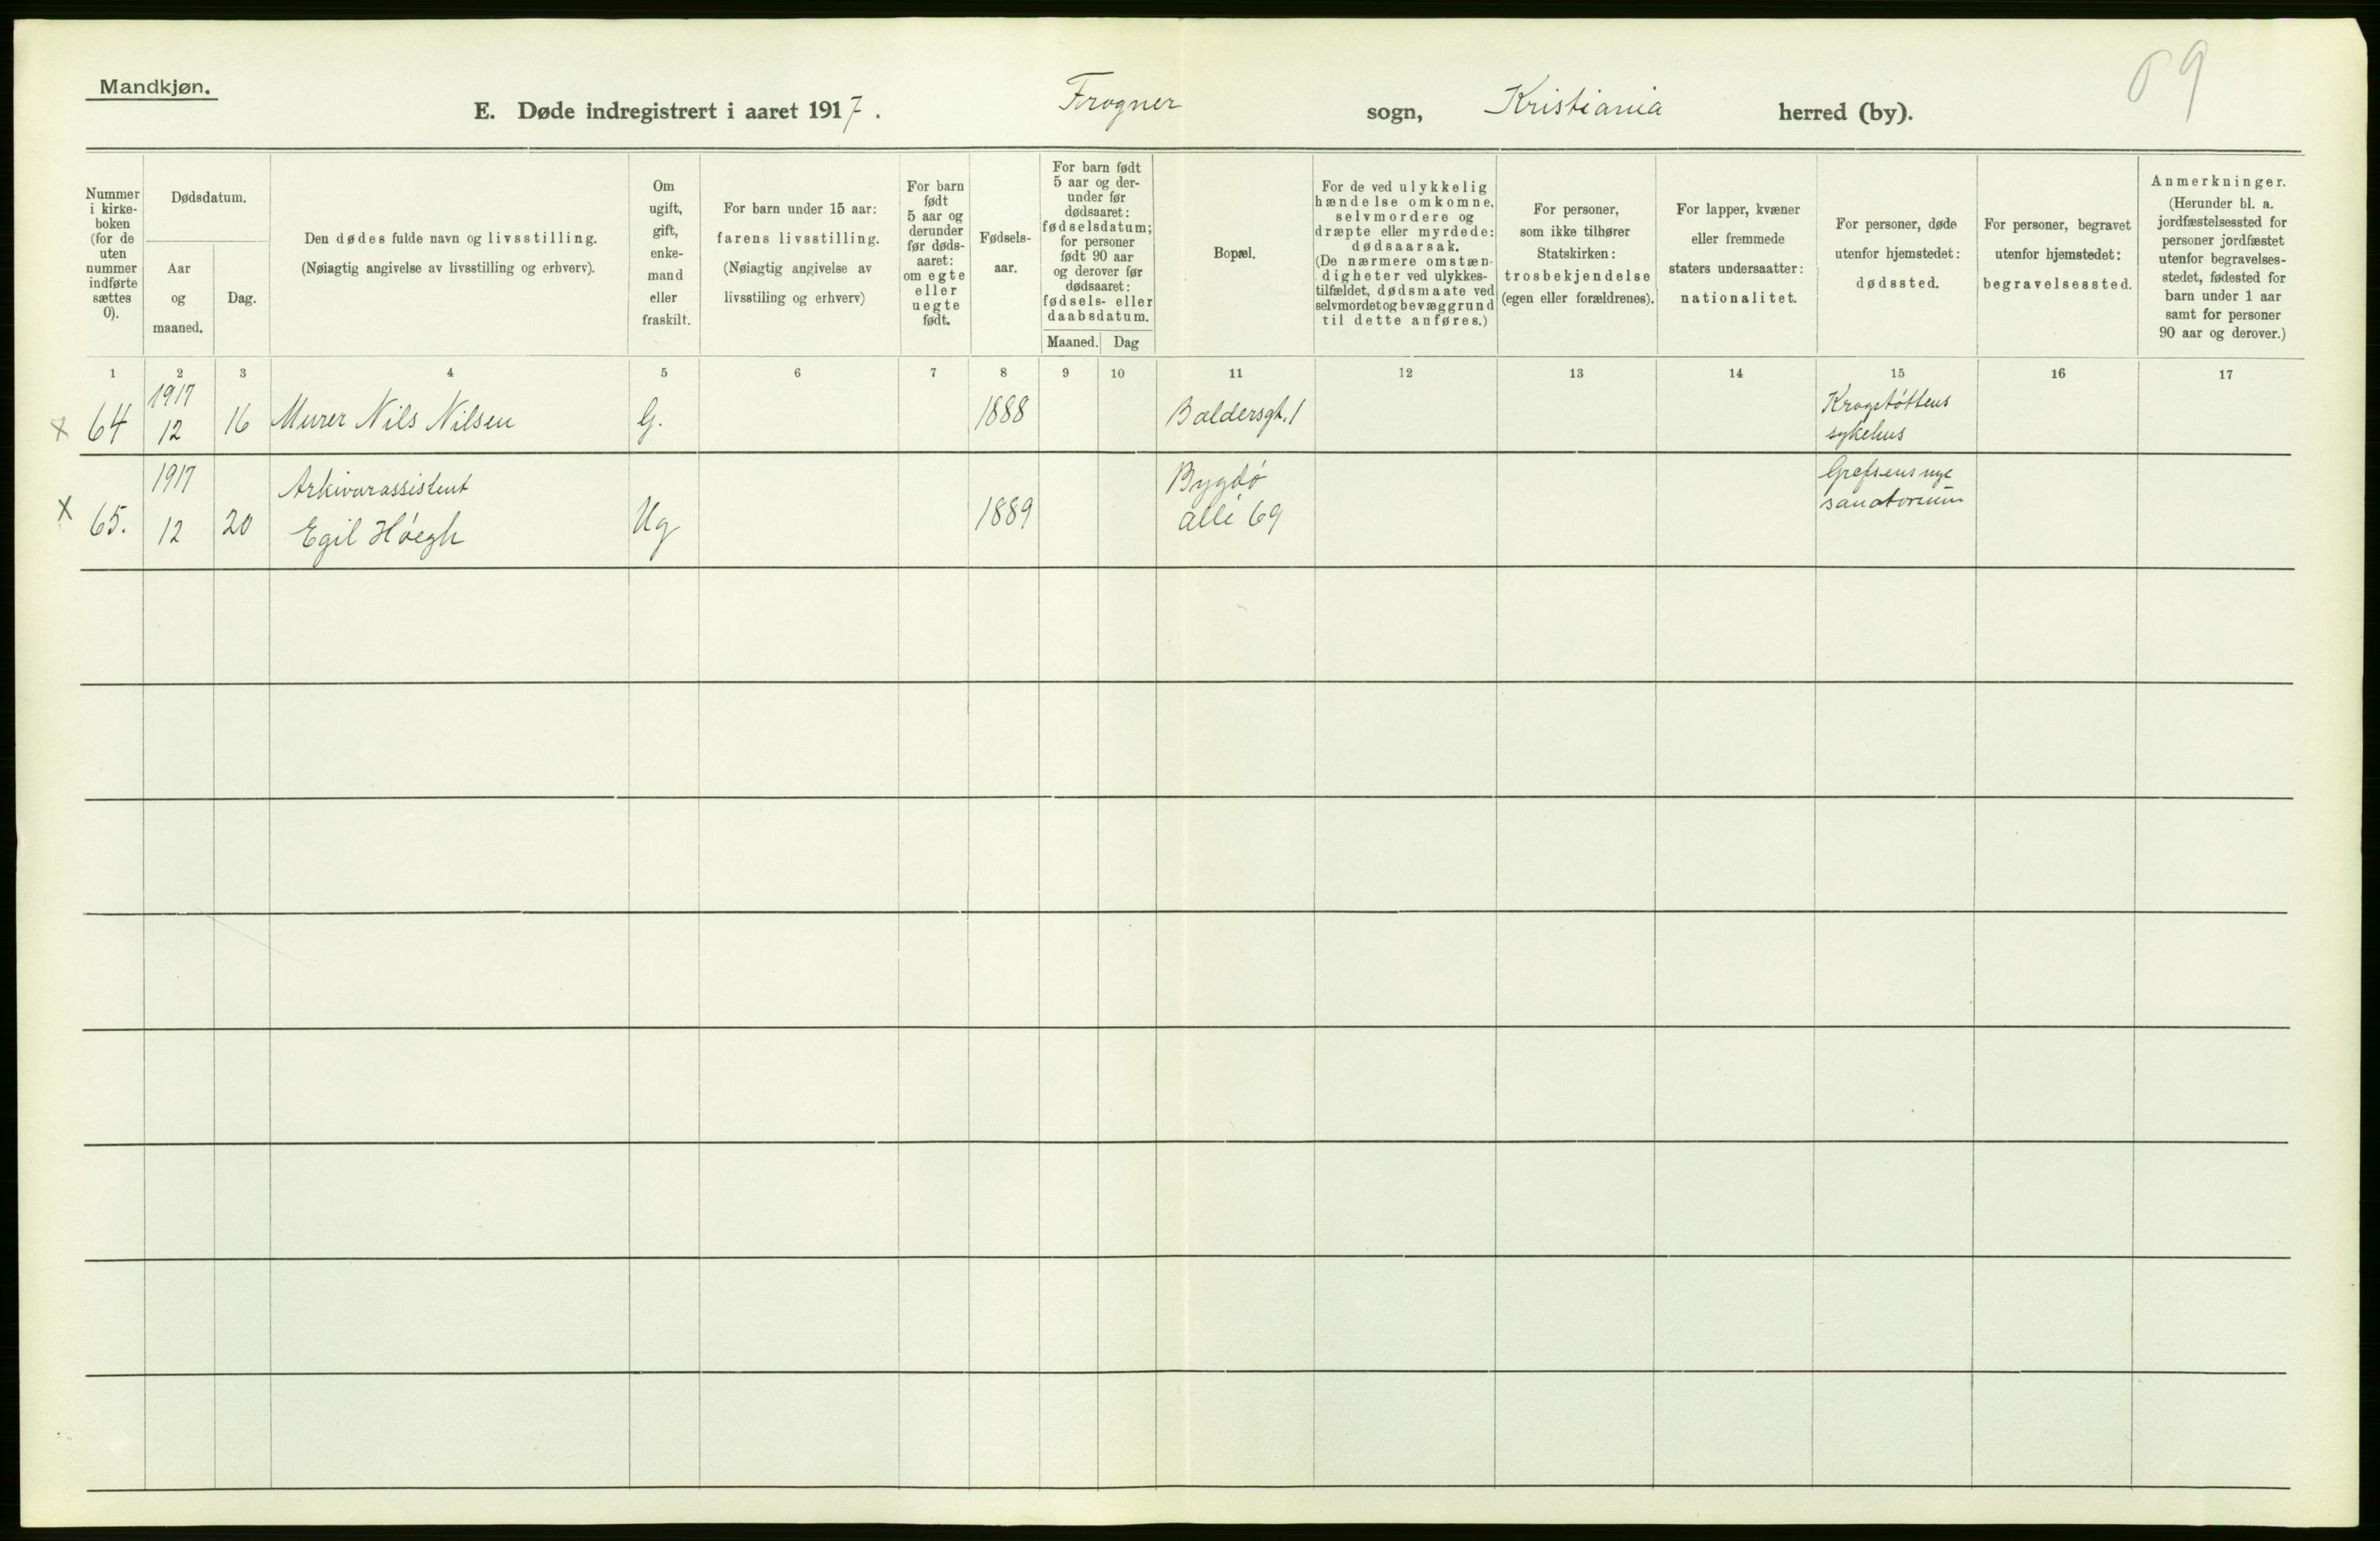 Mandkjøn.
E. Døde indregistrert i aaret 1917. Frogner sogn, Kristiania herred (by).
69
Nummer
i kirke-
boken
(for de
uten
nummer
indførte
sættes
0).
Dødsdatum.
Aar
og
maaned.
Dag.
Den dødes fulde navn og livsstilling.
(Nøiagtig angivelse av livsstilling og erhverv).
Om
ugift,
gift,
enke-
mand
eller
fraskilt.
For barn under 15 aar:
farens livsstilling.
(Nøiagtig angivelse av
livsstiling og erhverv)
For barn
født
5 aar og
derunder
før døds-
aaret:
om egte
eller
uegte
født.
Fødsels-
aar.
For barn født
5 aar og der-
under før
dødsaaret:
fødselsdatum;
for personer
født 90 aar
og derover før
dødsaaret:
fødsels- eller
daabsdatum.
Maaned. Dag
Bopæl.
For de ved ulykkelig
hændelse omkomne,
selvmordere og
dræpte eller myrdede:
dødsaarsak.
(De nærmere omstæn-
digheter ved ulykkes-
tilfældet, dødsmaate ved
selvmordet og bevæggrund
til dette anføres.)
For personer,
som ikke tilhører
Statskirken:
trosbekjendelse
(egen eller forældrenes).
For lapper, kvæner
eller fremmede
staters undersaatter:
nationalitet.
For personer, døde
utenfor hjemstedet:
dødssted.
For personer, begravet
utenfor hjemstedet:
begravelsessted.
Anmerkninger.
(Herunder bl. a.
jordfæstelsessted for
personer jordfæstet
utenfor begravelses-
stedet, fødested for
barn under 1 aar
samt for personer
90 aar og derover.)
1 2 3 4 5 6 7 8 9 10 11 12 13 14 15 16 17
x 64
1917
12
16
Murer Nils Nilsen
G.
1888
Baldersgt. 1
Krogstøttens
sykehus
x 65.
1917
12
20
Arkivarassistent
Egil Høegh
Ug
1889
Bygdø
alle 69
Grefsens nye
sanatorium